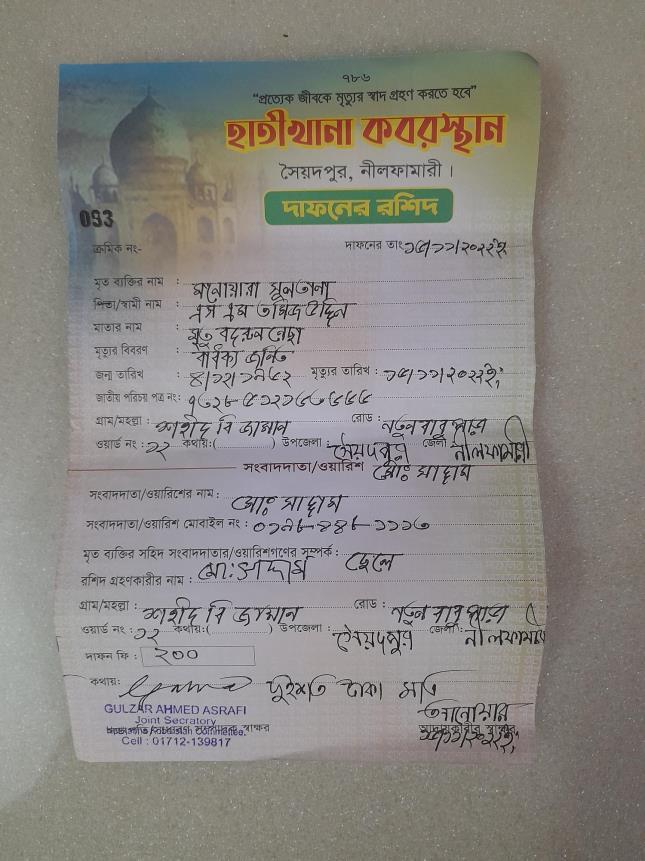 ৭৮৬
“প্রত্যেক জীবকে মৃত্যুর স্বাদ গ্রহণ করতে হবে”
হাতীখানা কবরস্থান
সৈয়দপুর, নীলফামারী।
দাফনের রশিদ
093
ক্রমিক নং- দাফনের তাং
মৃত ব্যক্তির নাম : মনোয়ারা সুলতানা
পিতা/স্বামী নাম : এস এম তমিজ উদ্দিন
মাতার নাম : মৃত বদরুন নেছা
মৃত্যুর বিবরণ : বার্ধক্য জনিত
জন্ম তারিখ : মৃত্যুর তারিখ :
জাতীয় পরিচয় পত্র নং:
গ্রাম/মহল্লা : শহীদ বি জামান রোড : নতুন বাবু পাড়া
ওয়ার্ড নং : ১২ কথায়:( ) উপজেলা : সৈয়দপুর জেলা নীলফামারী
সংবাদদাতা/ওয়ারিশ মোঃ সাদ্দাম
সংবাদদাতা/ওয়ারিশের নাম : মোঃ সাদ্দাম
সংবাদদাতা/ওয়ারিশ মোবাইল নং :
মৃত ব্যক্তির সহিদ সংবাদদাতার/ওয়ারিশগণের সম্পর্ক : ছেলে
রশিদ গ্রহণকারীর নাম : মো: সাদ্দাম
গ্রাম/মহল্লা : শহীদ বি জামান রোড : নতুন বাবু পাড়া
ওয়ার্ড নং : ১২ কথায়:( ) উপজেলা : সৈয়দপুর জেলা : নীলফামারী
দাফন ফি : ২০০
কথায়: দুইশত টাকা মাত্র
GULZAR AHMED ASRAFI আনোয়ার
Joint Secratory
স্বাক্ষর আদায়কারীর স্বাক্ষর
Cell : 01712-139817